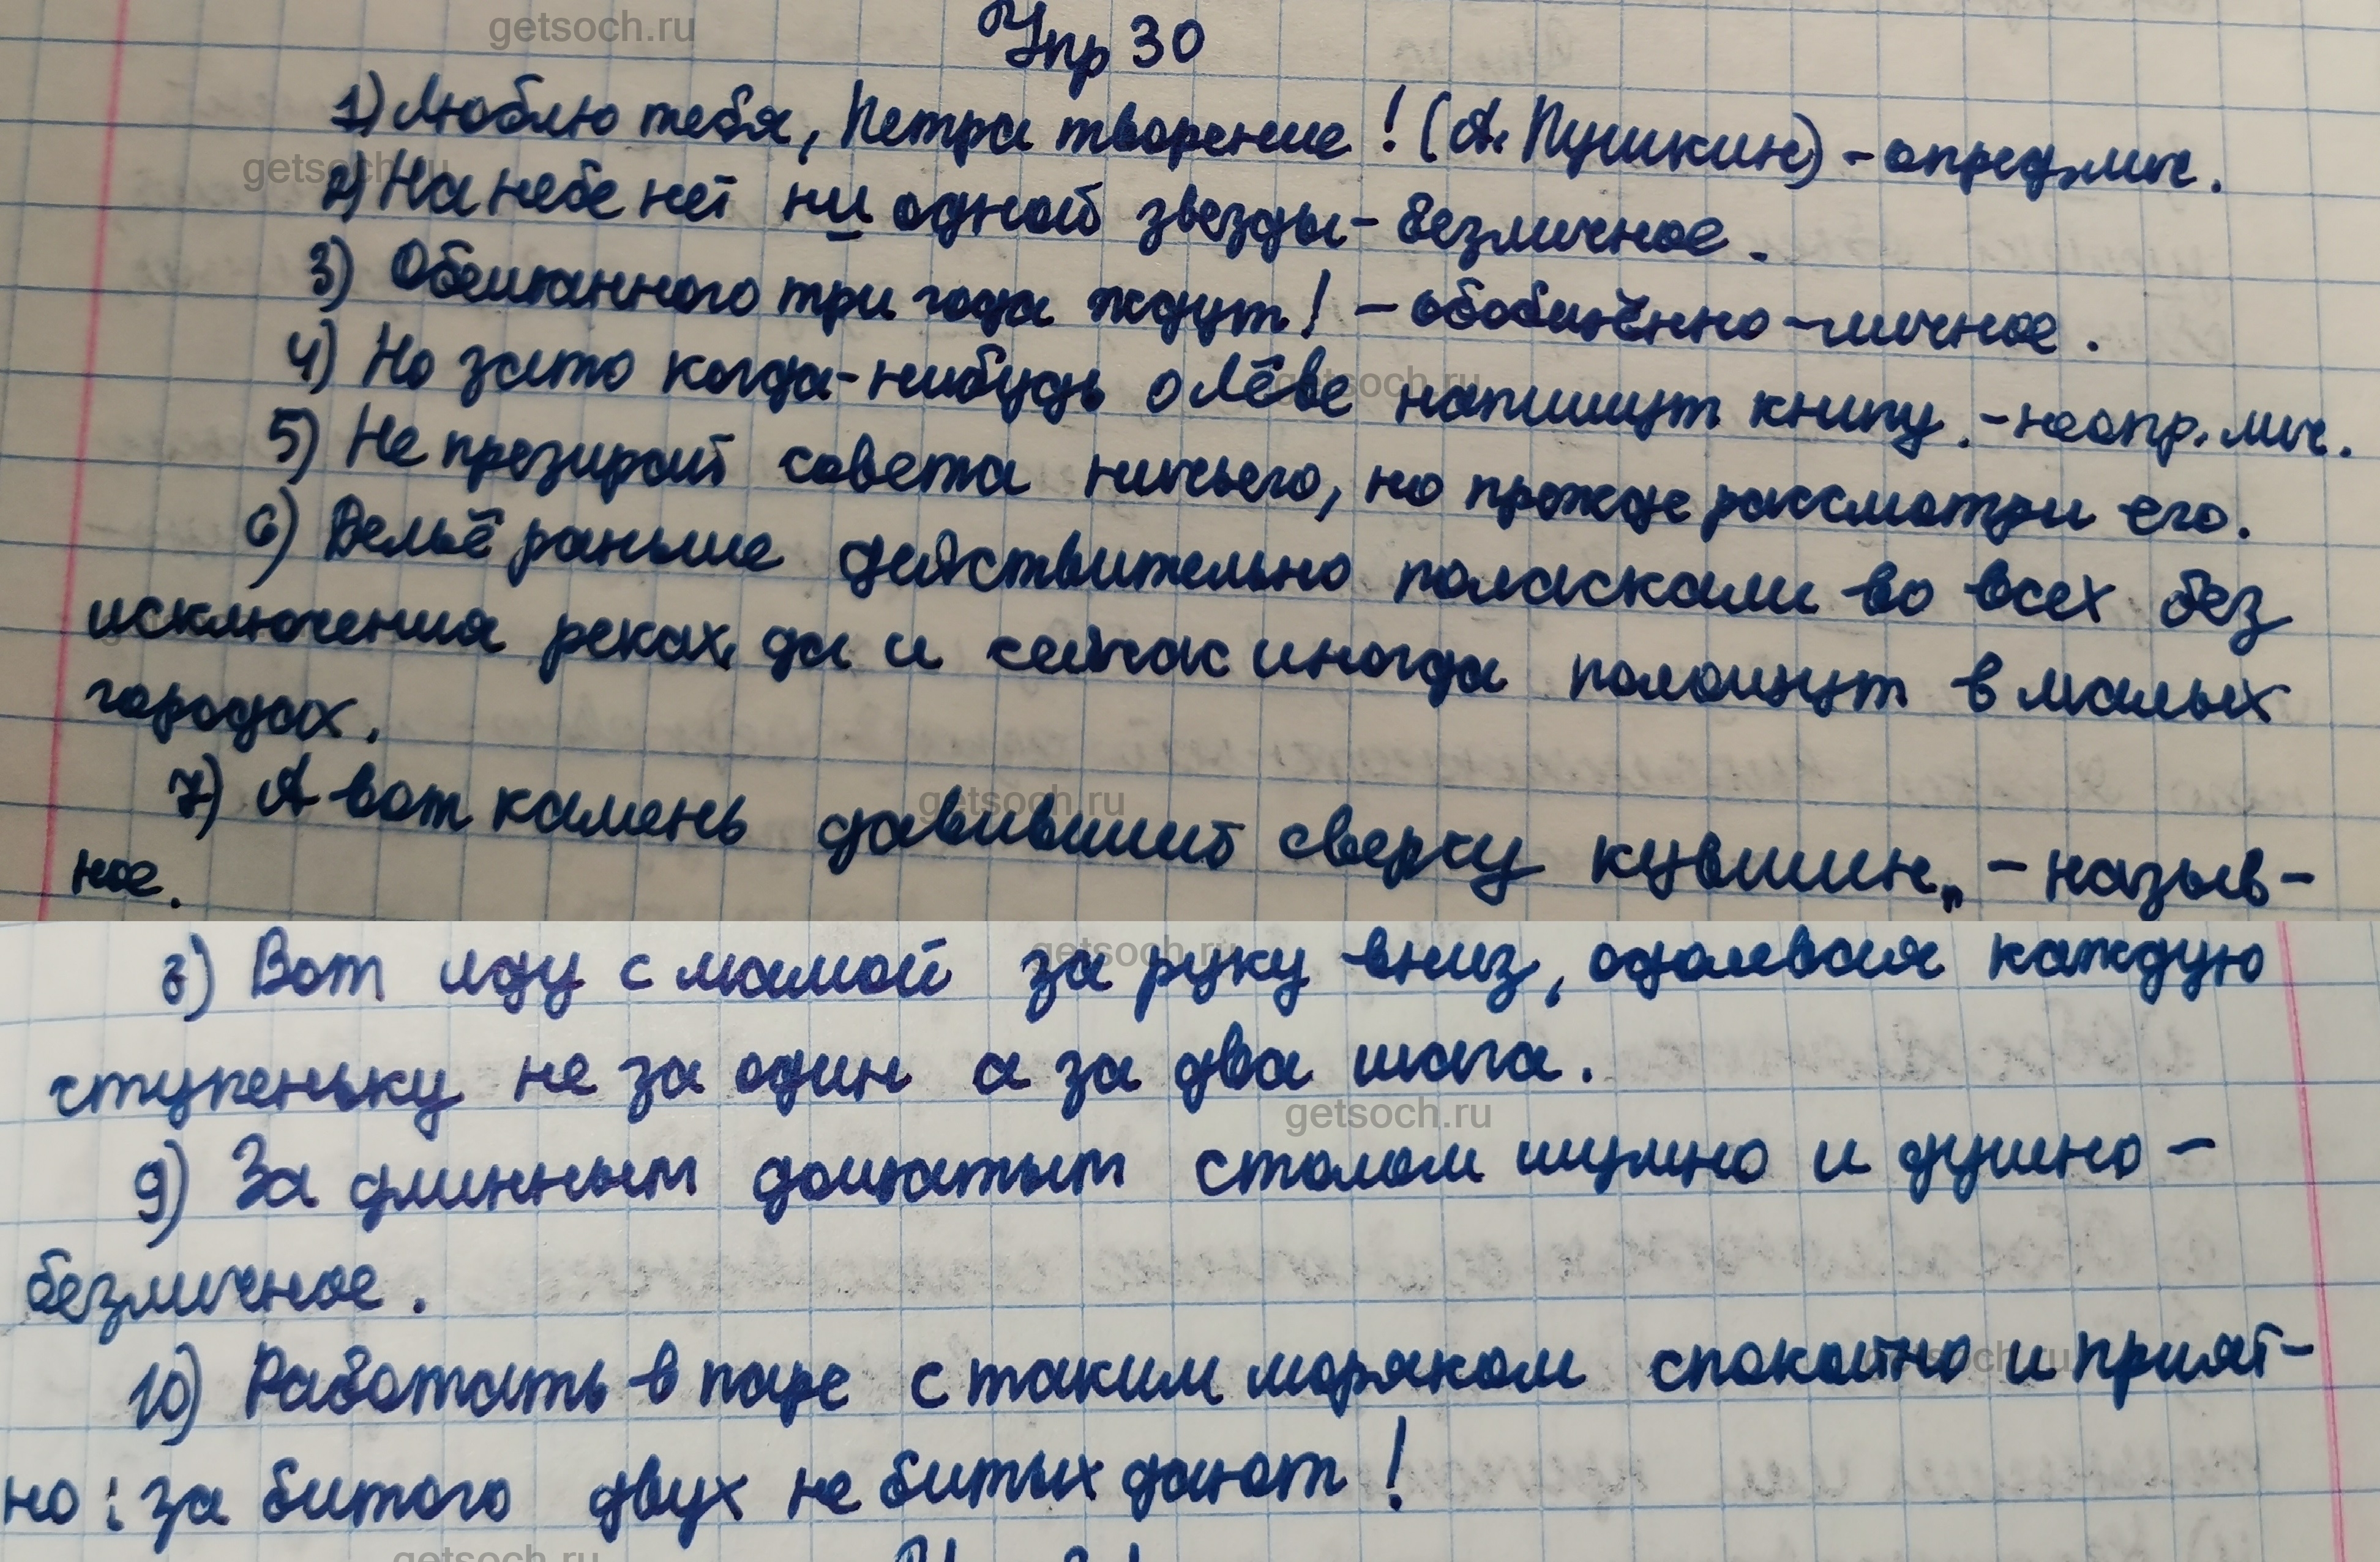 Упр 30
1) Люблю тебя, Петра творение! (А. Пушкин) - опред-лич.
2) На небе нет ни одной звезды - безличное.
3) Обещанного три года ждут! - обобщённо-личное.
4) Но зато когда-нибудь о Лёве напишут книгу. - неопр. лич.
5) Не презирай совета ничьего, но прежде рассмотри его.
6) Бельё раньше действительно поласкали во всех без
исключения реках, да и сейчас иногда полощут в малых
городах.
7) А вот камень давивший сверху кувшин„ - назыв-
ное.
8) Вот иду с мамой за руку вниз, одолевая каждую
ступеньку не за один а за два шага.
9) За длинным дощатым столом шумно и душно -
безличное.
10) Работать в паре с таким моряком спокойно и прият-
но: за битого двух не битых дают!
getsoch.ru
getsoch.ru
getsoch.ru
getsoch.ru
getsoch.ru
getsoch.ru
getsoch.ru
getsoch.ru